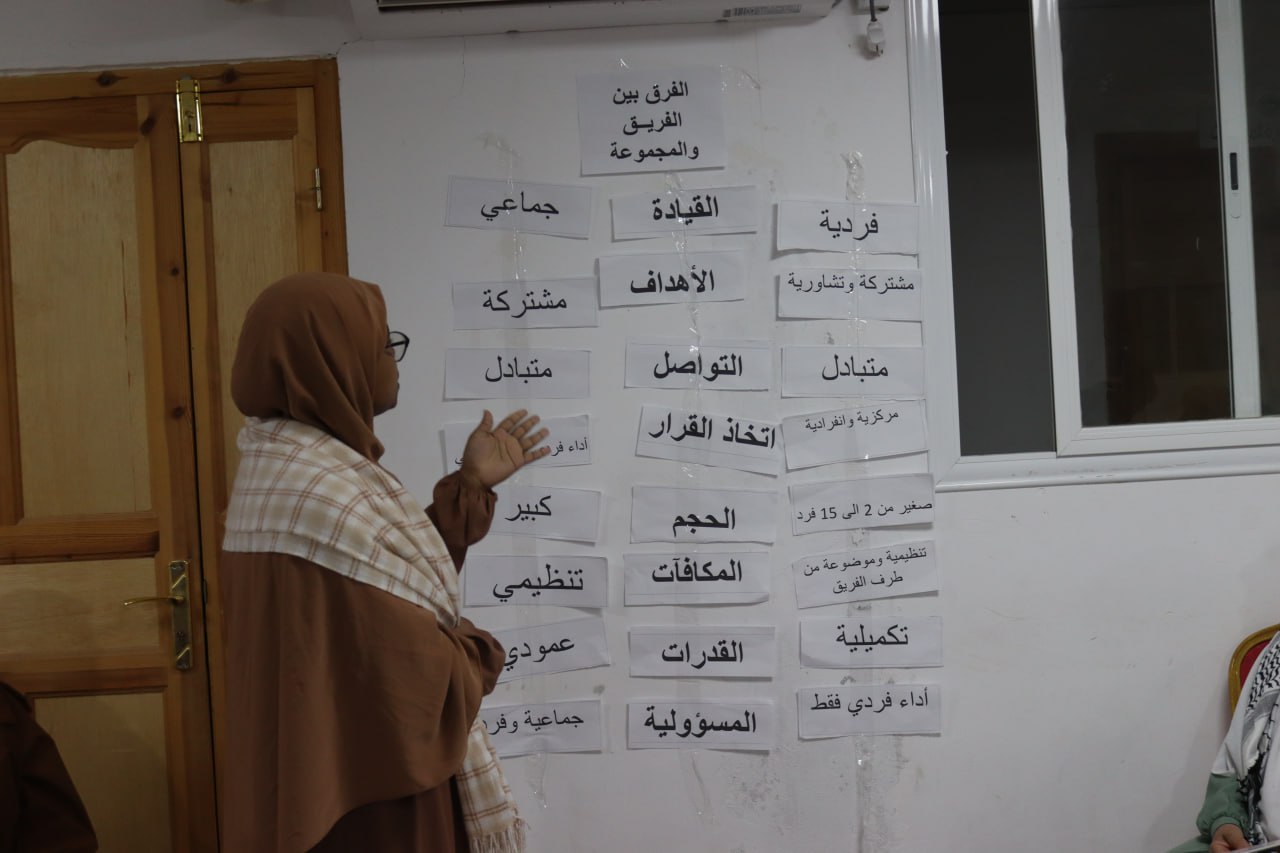 الفرق بين
الفريــق
والمجموعة
فردية
القيادة
جماعي
مشتركة وتشاورية
الأهداف
مشتركة
متبادل
التواصل
متبادل
مركزية وانفرادية
اتخاذ القرار
أداء
صغير من 2 الى 15 فرد
الحجم
كبير
تنظيمية وموضوعة من
طرف الفريق
المكافآت
تنظيمي
تكميلية
القدرات
عمودي
أداء فردي فقط
المسؤولية
جماعية